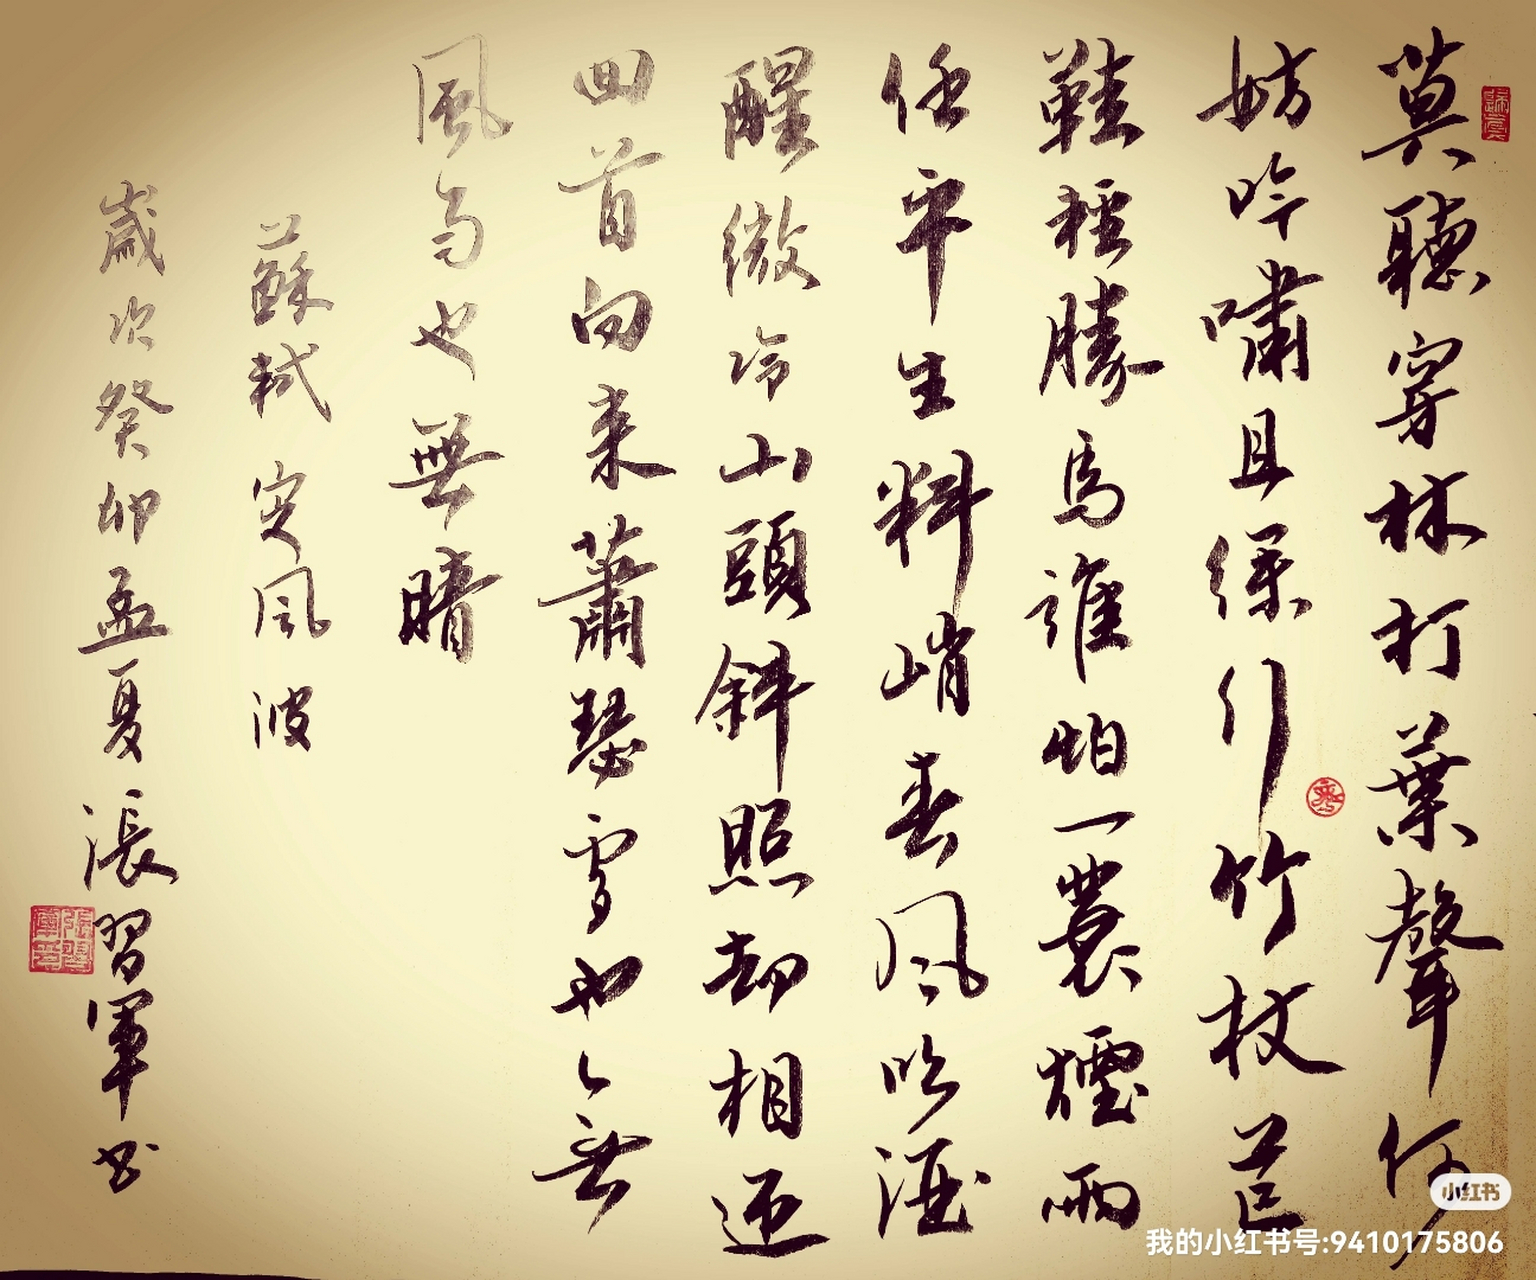 莫聽穿林打葉聲何
妨吟嘯且徐行竹杖芒
鞋輕勝馬誰怕一蓑煙雨
任平生料峭春风吹酒
醒微冷山頭斜照却相迎
回首向来蕭瑟處也無
風雨也無晴
蘇軾定风波
歲次癸卯孟夏張習軍书
張習軍印
小红书
我的小红书号:9410175806